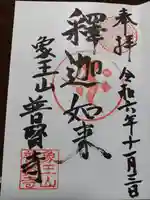 奉拝
令和六年十一月三日
釋迦如来
象王山
普賢寺